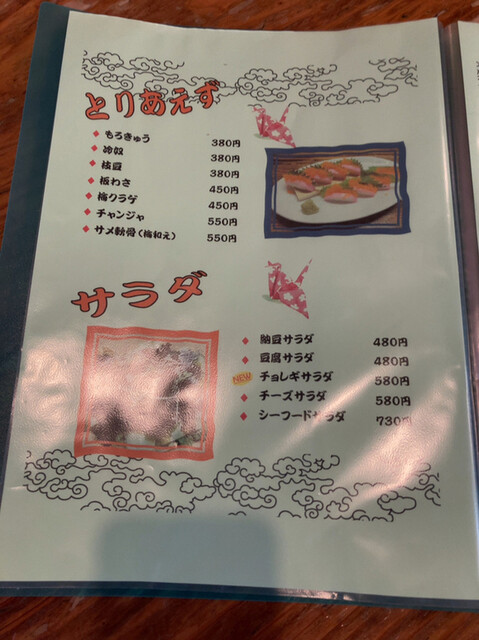 とりあえず
もろきゅう 380円
冷奴 380円
枝豆 380円
板わさ 450円
梅クラゲ 450円
チャンジャ 550円
サメ軟骨(梅和え) 550円
サラダ
納豆サラダ 480円
豆腐サラダ 480円
チョレギサラダ 580円
チーズサラダ 580円
シーフードサラダ 730円